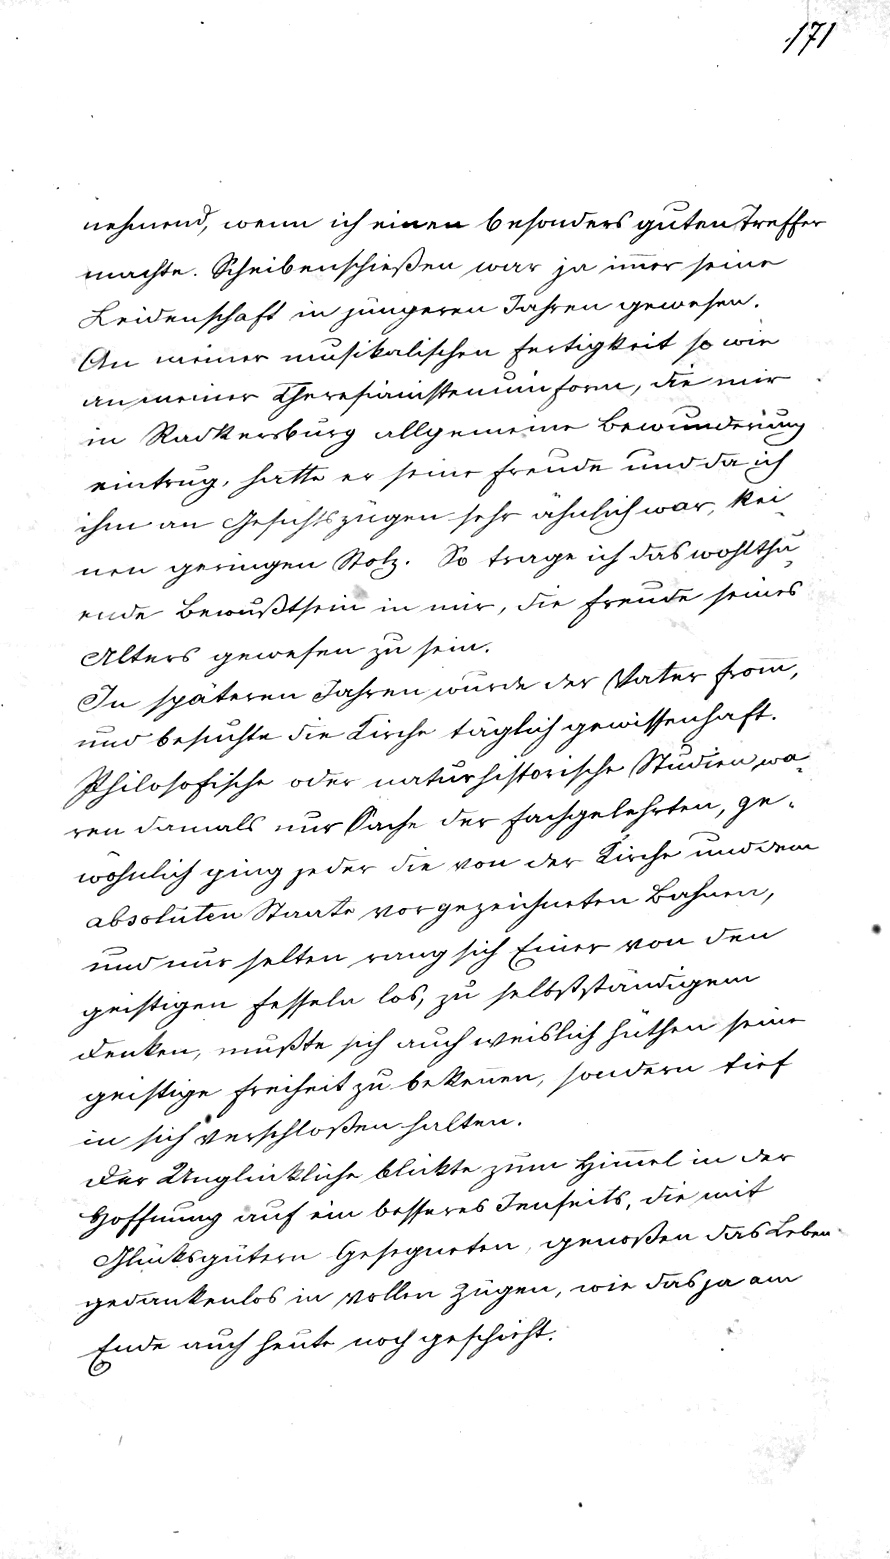 171
nehmend, wenn ich einen besonders guten Treffer
machte. Scheibenschießen war ja im̅er seine
Leidenschaft in jüngeren Jahren gewesen.
An meiner musikalischen Fertigkeit so wie
an meiner Theresianistenuniform, die mir
in Radkersburg allgemeine Bewunderung
eintrug, hatte er seine Freude und da ich
ihm an Gesichtszügen sehr ähnlich war, kei-
nen geringen Stolz. So trage ich das wohlthu-
ende Bewußtsein in mir, die Freude seines
Alters gewesen zu sein.
In späteren Jahren wurde der Vater from̅,
und besuchte die Kirche täglich gewissenhaft.
Philosofische oder naturhistorische Studien wa-
ren damals nur Sache der Fachgelehrten, ge-
wöhnlich ging jeder die von der Kirche und dem
absoluten Staate vorgezeichneten Bahnen,
und nur selten rang sich Einer von den
geistigen Fesseln los, zu selbstständigem
Denken, mußte sich auch weislich hüthen seine
geistige Freiheit zu beken̅en, sondern tief
in sich verschloßen halten.
Der Unglückliche blickte zum Him̅el in der
Hoffnung auf ein besseres Jenseits, die mit
Glücksgütern Gesegneten, genoßen das Leben
gedankenlos in vollen Zügen, wie das ja am
Ende auch heute noch geschieht.